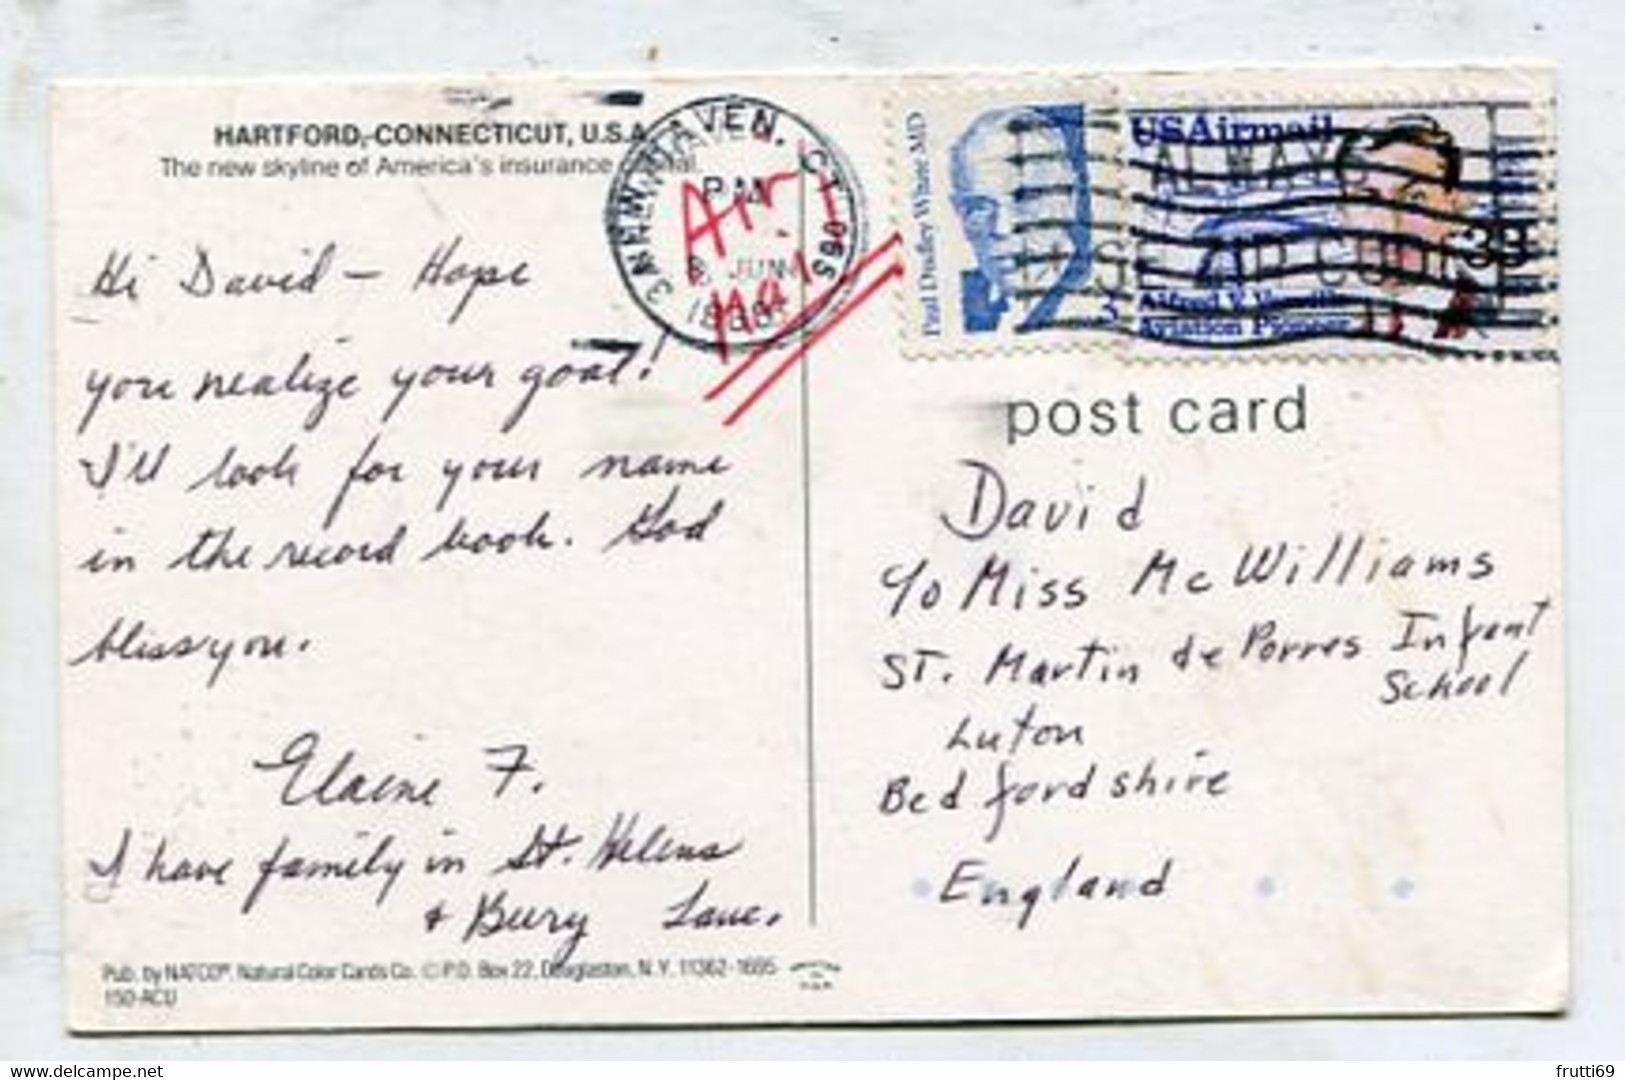 HARTFORD, CONNECTICUT, U.S.A.
The new skyline of America's insurance
Hi David - Hope
you realize your goal!
I'll look for your name
in the record book. God
bless you.
Elaine F.
I have family in St. Helens
+ Bury Lanc.
Pub. by NATCO®, Natural Color Cards Co. © P.O. Box 22, Douglaston, N.Y. 11362-1695
150-ACU
NEW HAVEN, CT 065
PM
8 JUN
Air
Mail
Paul Dudley White MD
3
USAirmail
ALWAYS
USE ZIP CODE
Alfred V. Verville
Aviation Pioneer
33
post card
David
c/o Miss McWilliams
St. Martin de Porres Infant
School
Luton
Bedfordshire
England
frutti69